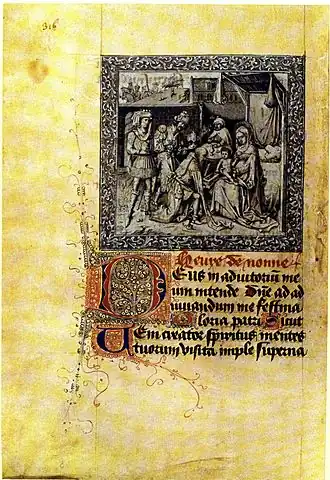 316
Heure de nonne
Deus in adiutoriũ me
um intende Dñe ad ad
iuuandum me festina
Gloria patri Sicut
Uem creator spiritus mentes
tuorum visita imple superna